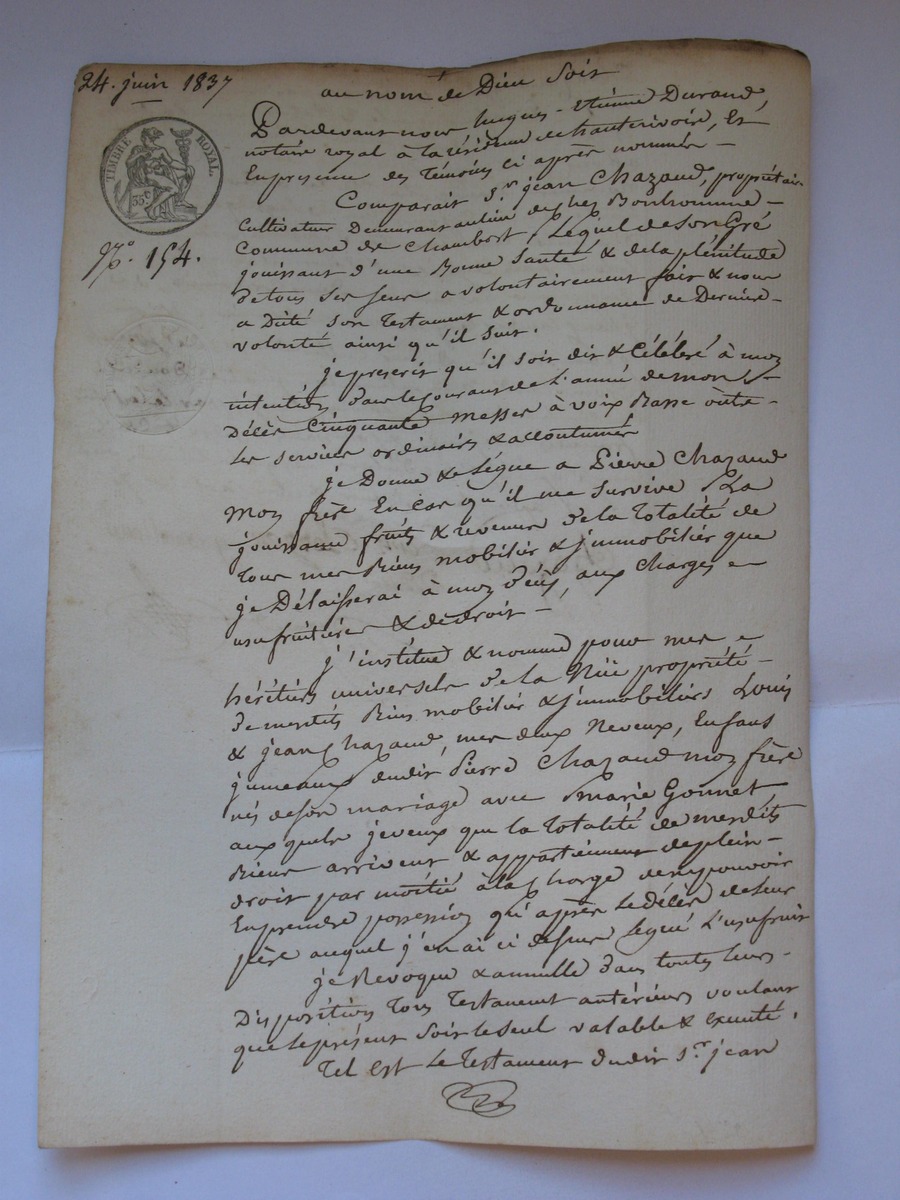 24. juin 1837
au nom de Dieu soit
TIMBRE ROYAL
35 c
N.o 154.
Pardevant nous hugues-Etienne Durand,
notaire royal à la résidence de hauterivoire, Et
En présence des témoins ci après nommés –
Comparait S.r jean Chazaud, propriétaire
Cultivateur Demeurant au lieu de chez Bonhomme –
Commune de Chambost, Lequel de son Gré
jouissant d'une Bonne Santé & de la plénitude
de tous ses sens a volontairement fait & nous
a Dicté son Testament & ordonnance de Dernière –
volonté ainsi qu'il suit.
je prescris qu'il soit dit & Célébré à mon
intention dans le courant de L'année de mon –
Décès Cinquante messes à voix Basse outre –
les services ordinaires & accoutumés
je Donne & Lègue a Pierre Chazaud
mon frère En cas qu'il me survive La
jouissance fruits & revenus de la Totalité de
Tous mes Biens mobilier & jmmobilier que
je Délaisserai à mon décès, aux Charges –
usufruitières & de droit –
j'institue & nomme pour mes –
héritiers universels de la Nüe propriété –
de mesdits Biens mobiliers & jmmobiliers Louis
& jean Chazaud, mes deux Neveux, Enfans
jumeaux dudit Pierre Chazaud mon frère
nés de son mariage avec Marie Gonnet
aux quels je veux que la Totalité de mesdits
Biens arrivent & appartiennent de plein –
droit par moitié à la Charge de ne pouvoir
En prendre possession qu'après Le décès de leur
père auquel j'en ai ci dessus Legué L'usufruit
je Révoque & annulle dans toutes leurs –
Dispositions Tous Testament antérieurs voulant
que le présent soit le seul valable & exécuté.
Tel est Le Testament dudit S.r jean